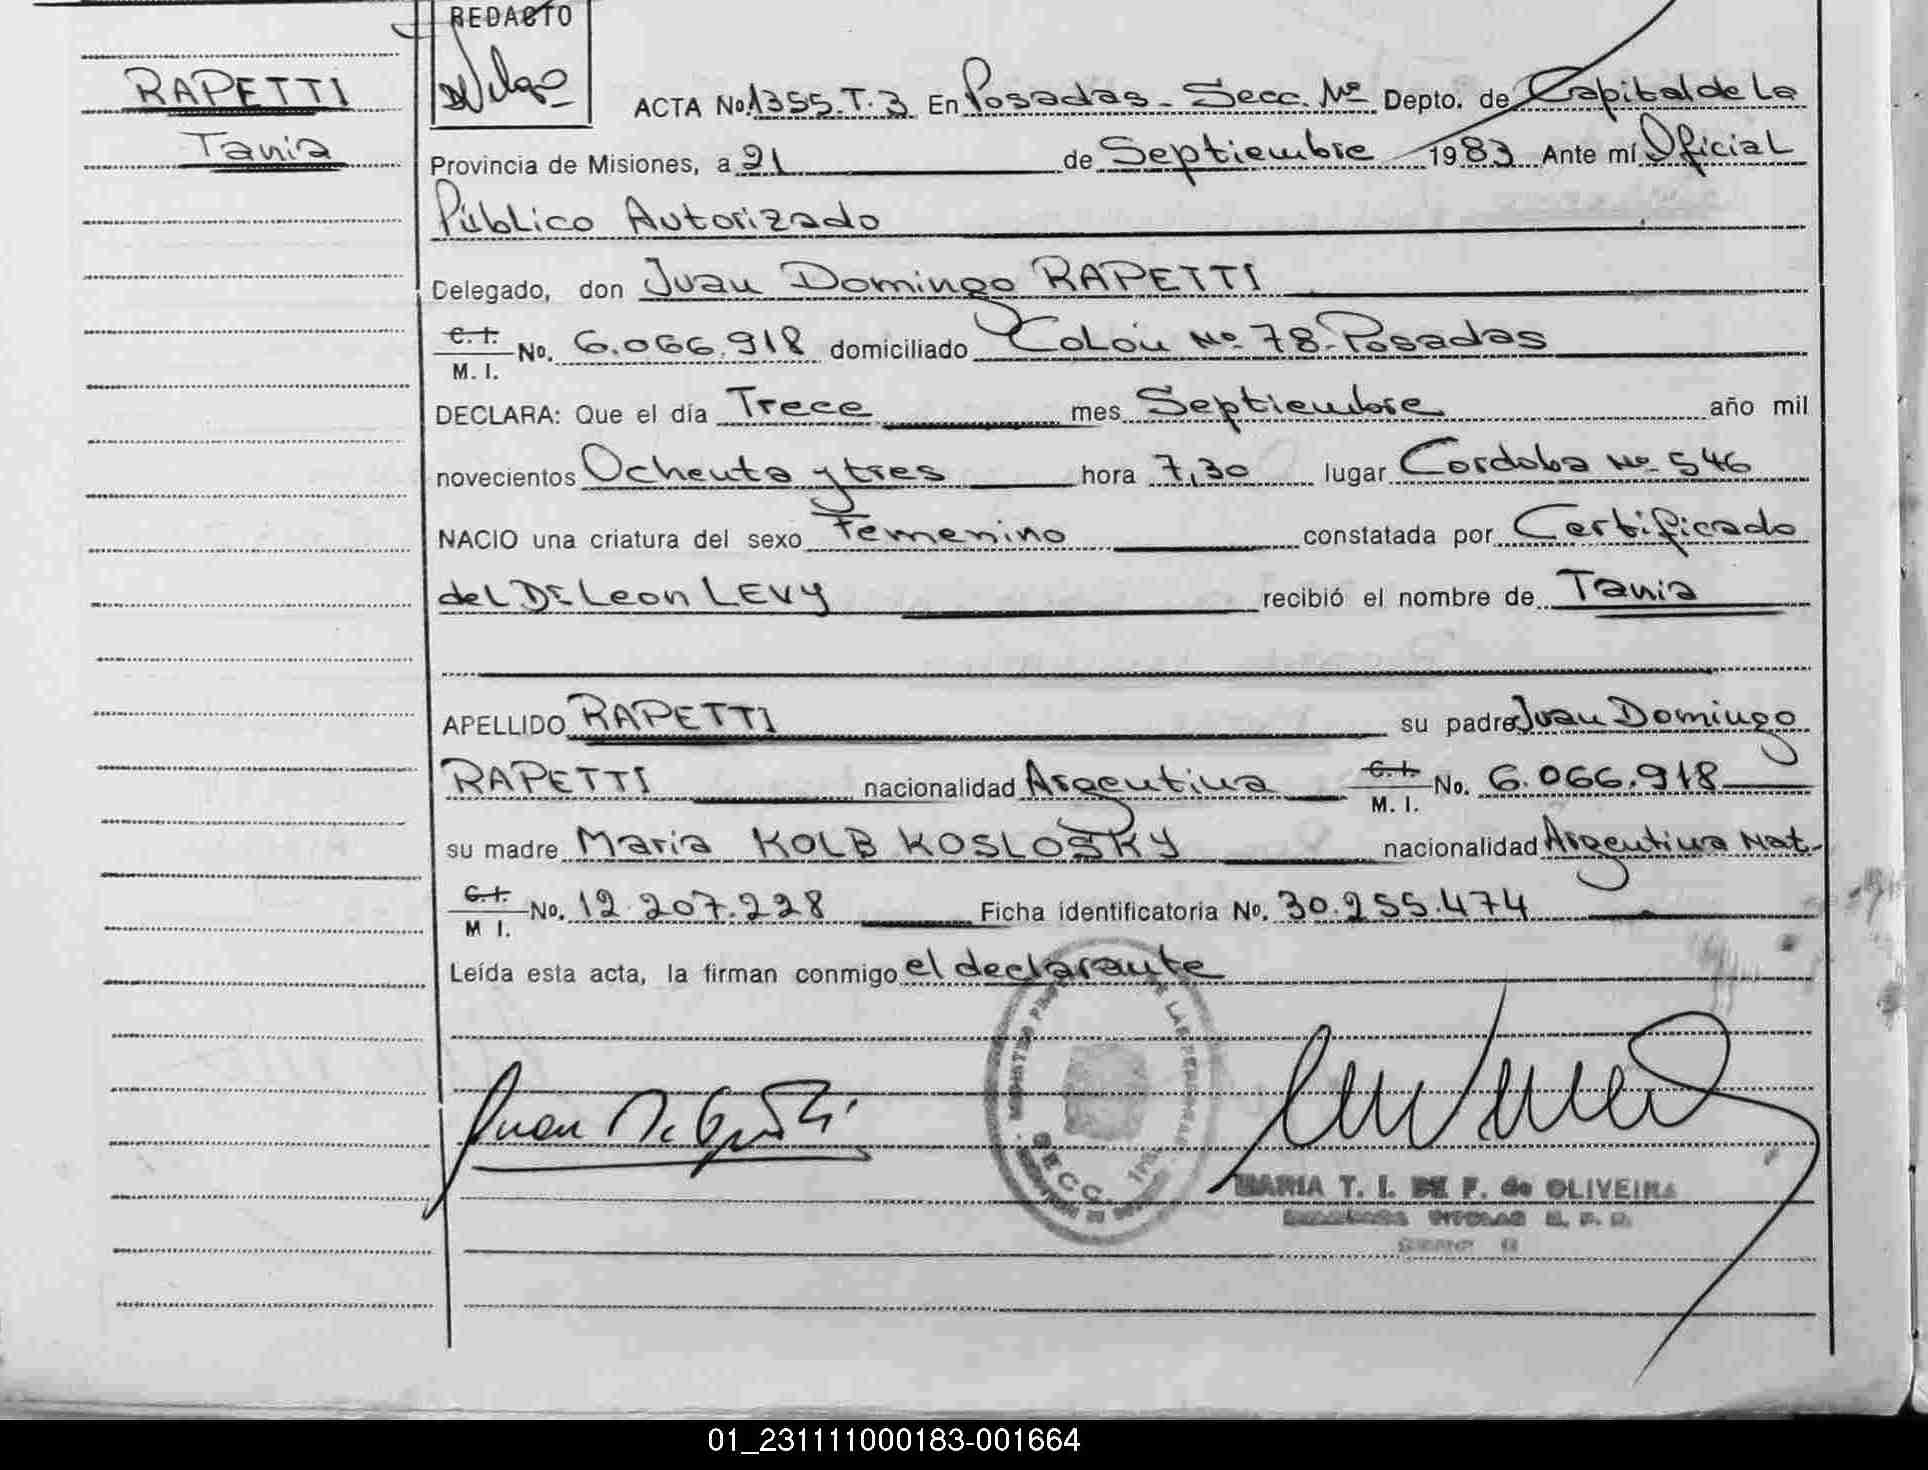 REDACTO
RAPETTI
Tania
ACTA No. 1355. T. 3 En Posadas - Secc. Nº Depto. de Capital de La
Provincia de Misiones, a 21 de Septiembre 1983 Ante mí Oficial
Público Autorizado
Delegado, don Juan Domingo RAPETTI
C. I. M. I. No. 6.066.918 domiciliado Colón Nº 78-Posadas
DECLARA: Que el día Trece mes Septiembre año mil
novecientos Ochenta y tres hora 7,30 lugar Cordoba Nº 546
NACIO una criatura del sexo Femenino constatada por Certificado
del Dr. Leon LEVY recibió el nombre de Tania
APELLIDO RAPETTI su padre Juan Domingo
RAPETTI nacionalidad Argentina C. I. M. I. No. 6.066.918
su madre Maria KOLB KOSLOSKY nacionalidad Argentina Nat.
C. I. M I. No. 12.207.228 Ficha identificatoria No. 30.255.474
Leída esta acta, la firman conmigo el declarante
SECC.
MARIA T. I. DE F. de OLIVEIRA
01_231111000183-001664